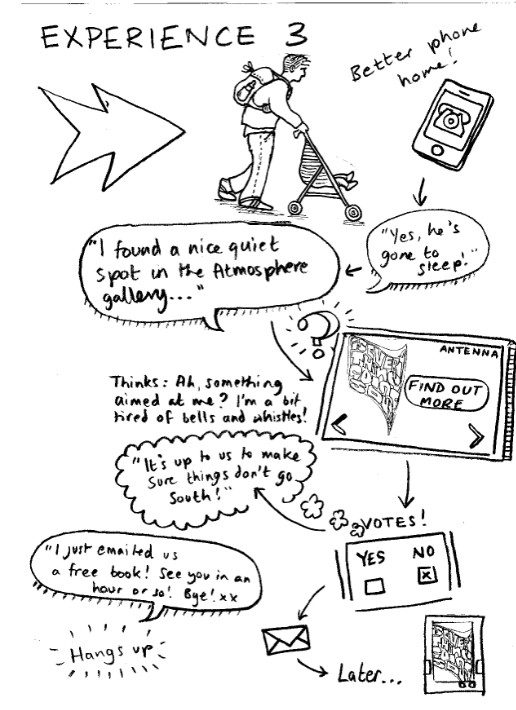 EXPERIENCE 3
Better phone
home!
"Yes, he's
gone to
sleep!"
"I found a nice quiet
spot in the Atmosphere
gallery..."
ANTENNA
FIND OUT
MORE
Thinks: Ah, something
aimed at me? I'm a bit
tired of bells and whistles!
"It's up to us to make
sure things don't go
South!"
VOTES!
YES NO
x
"I just emailed us
a free book! See you in an
hour or so! Bye! xx
Hangs up
Later...